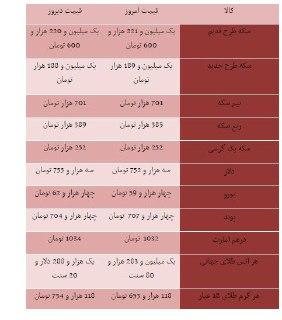 کالا قیمت امروز قیمت دیروز
سکه طرح قدیم یک میلیون و 221 هزار و 600 تومان یک میلیون و 220 هزار و 600 تومان
سکه طرح جدید یک میلیون و 189 هزار تومان یک میلیون و 188 هزار تومان
نیم سکه 701 هزار تومان 701 هزار تومان
ربع سکه 385 هزار تومان 389 هزار تومان
سکه یک گرمی 252 هزار تومان 252 هزار تومان
دلار سه هزار و 752 تومان سه هزار و 755 تومان
یورو چهار هزار و 59 تومان چهار هزار و 62 تومان
پوند چهار هزار و 707 تومان چهار هزار و 704 تومان
درهم امارات 1032 تومان 1034 تومان
هر انس طلای جهانی یک میلیون و 283 هزار و 80 سنت یک هزار و 288 دلار و 20 سنت
هر گرم طلای 18 عیار 118 هزار و 653 تومان 118 هزار و 754 تومان